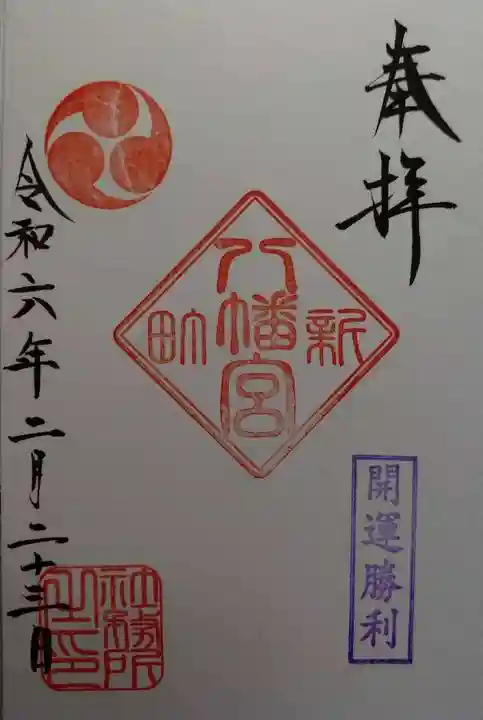 奉拝
新町
八幡宮
開運勝利
令和六年二月二十三日
社務所之印